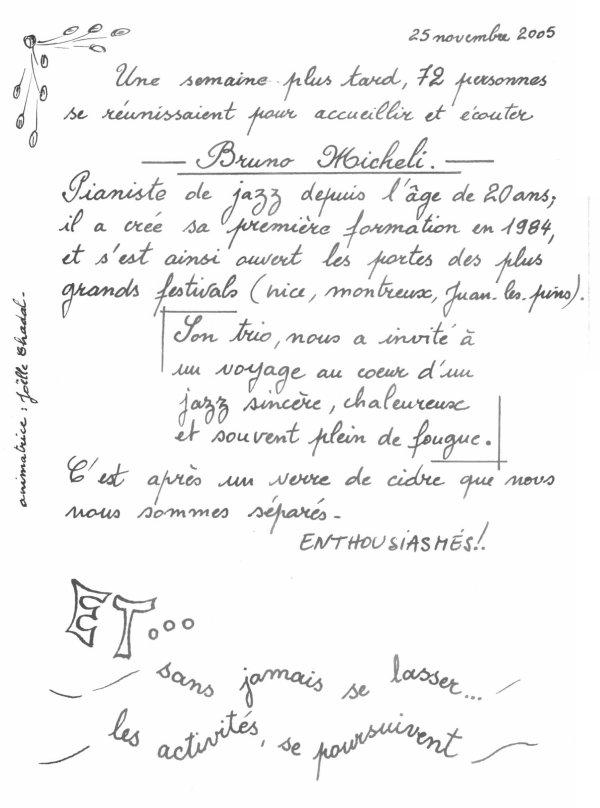 25 novembre 2005
Une semaine plus tard, 72 personnes
se réunissaient pour accueillir et écouter
— Bruno Micheli. —
Pianiste de jazz depuis l'âge de 20 ans,
il a créé sa première formation en 1984,
et s'est ainsi ouvert les portes des plus
grands festivals (nice, montreux, Juan-les-pins).
Son trio, nous a invité à
un voyage au coeur d'un
jazz sincère, chaleureux
et souvent plein de fougue.
C'est après un verre de cidre que nous
nous sommes séparés -
ENTHOUSIASMÉS!!
animatrice : Joëlle Chadal -
ET...
sans jamais se lasser...
les activités, se poursuivent